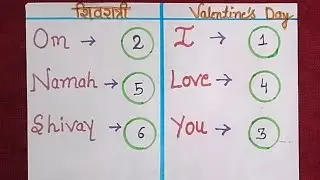 शिवरात्री
Valentine's Day
Om → 2
I → 1
Namah → 5
Love → 4
Shivay → 6
You → 3